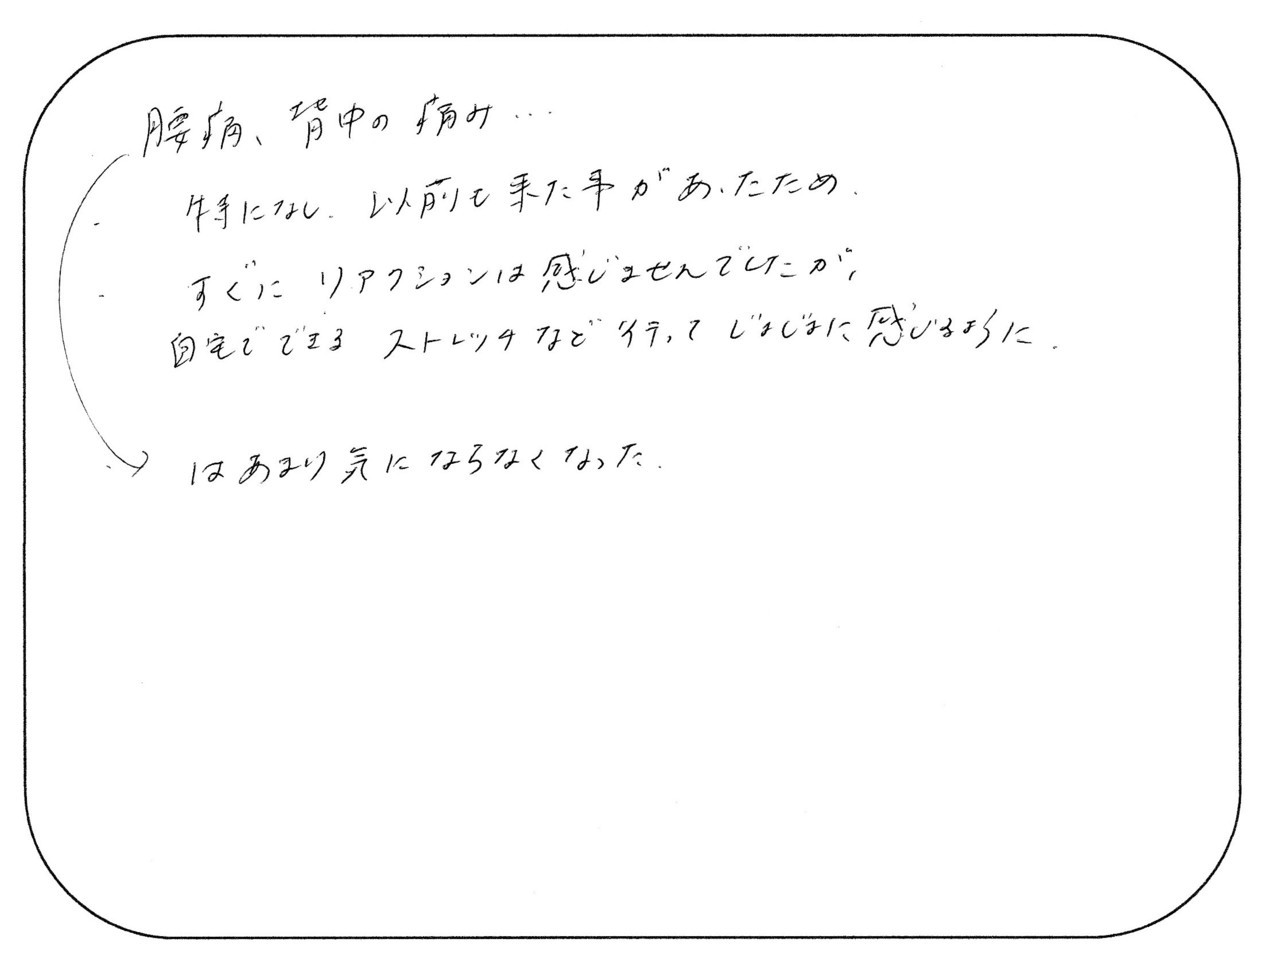 腰痛、背中の痛み…
・ 特になし. 以前も来た事があったため.
・ すぐに リアクションは感じませんでしたが、
自宅でできる ストレッチなど行って じまじまに感じるように.
・ はあまり気にならなくなった.